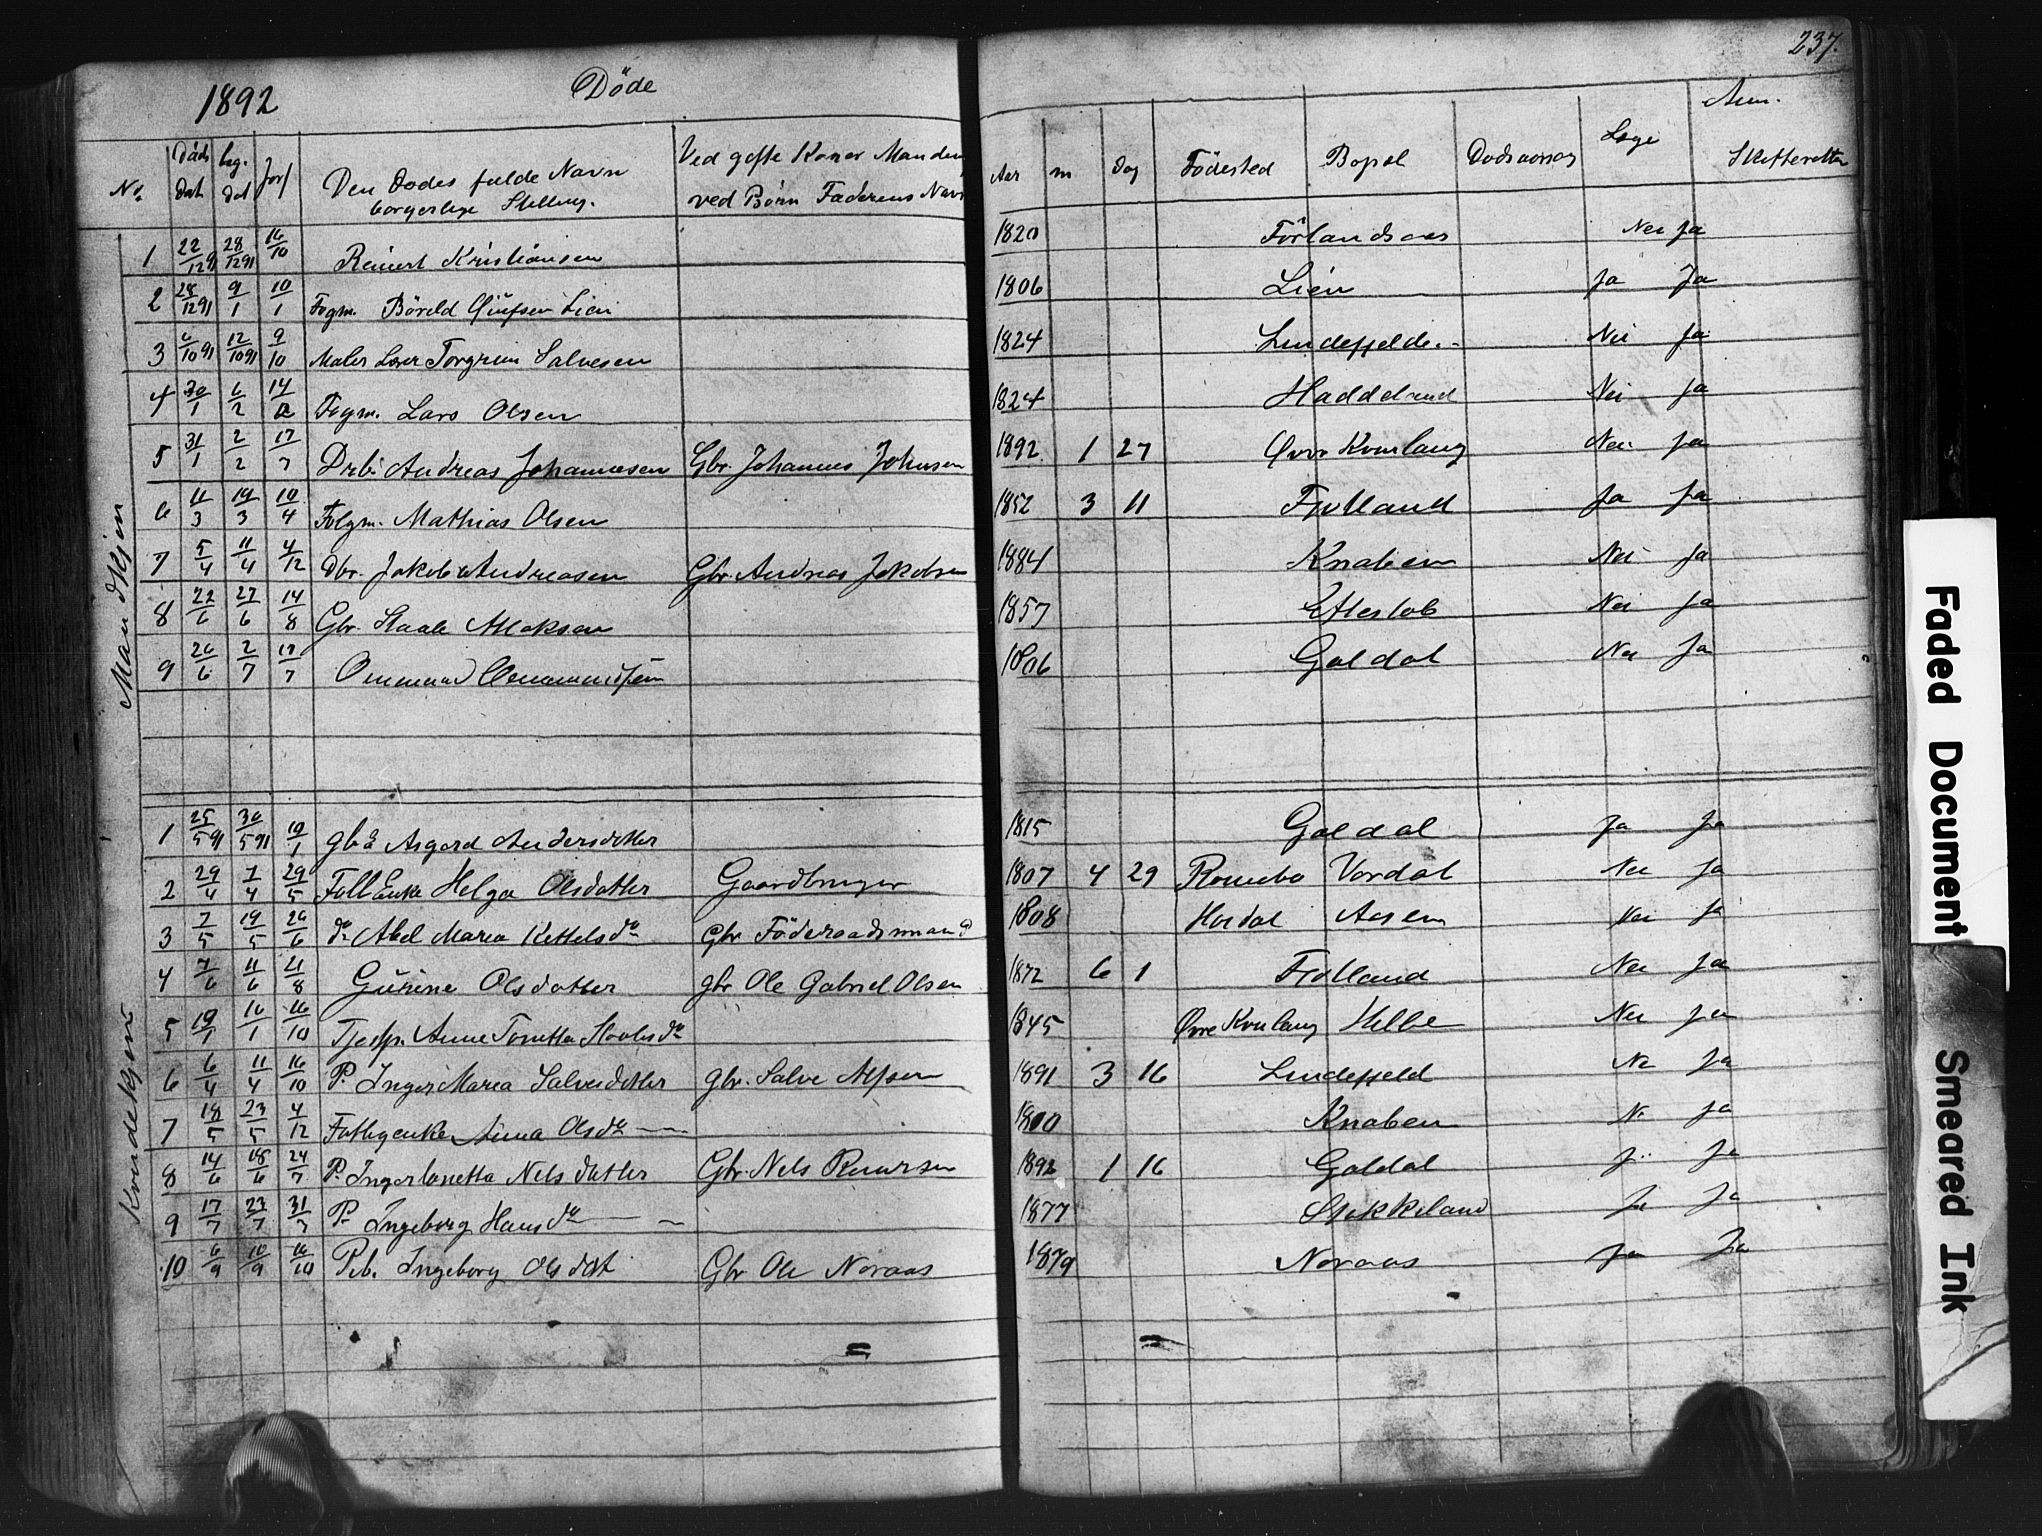 237.
1892 Döde
No. Döds dat beg. dat Jorf Den Dodes fulde Navn borgerlige Stilling. Ved gifte Koner Manden ved Börn Faderens Navn Aar m Dag Födested Bopel Dodsaarsag Lege Anm. Skifteretten
Mandkjøn
1 22/1291 28/1291 16/10 Reinert Kristiansen 1820 Förlandsaas Nei Ja
2 28/1291 9/1 10/1 Fogm. Böreld Lien 1806 Lien Ja Ja
3 6/1091 12/1091 9/10 Maler Torgrim Salvesen 1824 Lindefjeld Nei Ja
4 30/1 6/2 14/12 Fogm. Lars Olsen 1824 Haddeland Nei Ja
5 31/1 2/2 17/7 Drb. Andreas Johannesen Gbr. Johannes Johnsen 1892 1 27 Øvre Kvinlaug Nei Ja
6 11/3 19/3 10/4 Folgm. Mathias Olsen 1852 3 11 Fjotland Ja Ja
7 5/4 11/4 4/12 Dbr. Jakob Andreasen Gbr. Andreas Jakobsen 1884 Knaben Nei Ja
8 22/6 27/6 14/8 Gbr. Staale Aslaksen 1857 Eftestöl Nei Ja
9 26/6 2/7 17/7 Ommund Ommundsen 1806 Galdal Nei Ja
Kvindekjøn
1 25/591 30/591 19/1 gb E Asgerd Andersdatter 1815 Galdal Ja Ja
2 29/4 7/4 29/5 Foll Enke Helga Olsdatter Gaardbruger 1807 4 29 Risnebo Vordal Nei Ja
3 7/5 19/5 26/6 do Abel Maria Kittelsdr Gbr Föderaadsmand 1808 Hisdal Aasen Nei Ja
4 7/6 11/6 21/8 Gurine Olsdatter gbr Ole Gabriel Olsen 1872 6 1 Fjotland Nei Ja
5 19/1 16/1 16/10 Tjesp. Anne Tonetta Staalesdr 1845 Øvre Kvinlaug Helle Nei Ja
6 6/4 11/4 16/10 P. Inger Maria Salvesdatter gbr. Salve Alfsen 1891 3 16 Lindefjeld Nei Ja
7 18/5 23/5 4/12 Folhgenke Anna Olsdr 1810 Knaben Ni Ja
8 14/6 18/6 24/7 P. Inger Tonetta Nelsdatter Gbr. Nels Reinersen 1892 1 16 Galdal Ja
9 17/7 23/7 31/7 P. Ingeborg Hansdr 1877 Stakkeland Ja Ja
10 6/9 10/9 16/10 Peb. Ingeborg Olsdat Gbr Ole Noraas 1879 Noraas Ja Ja
Faded Document
Smeared Ink